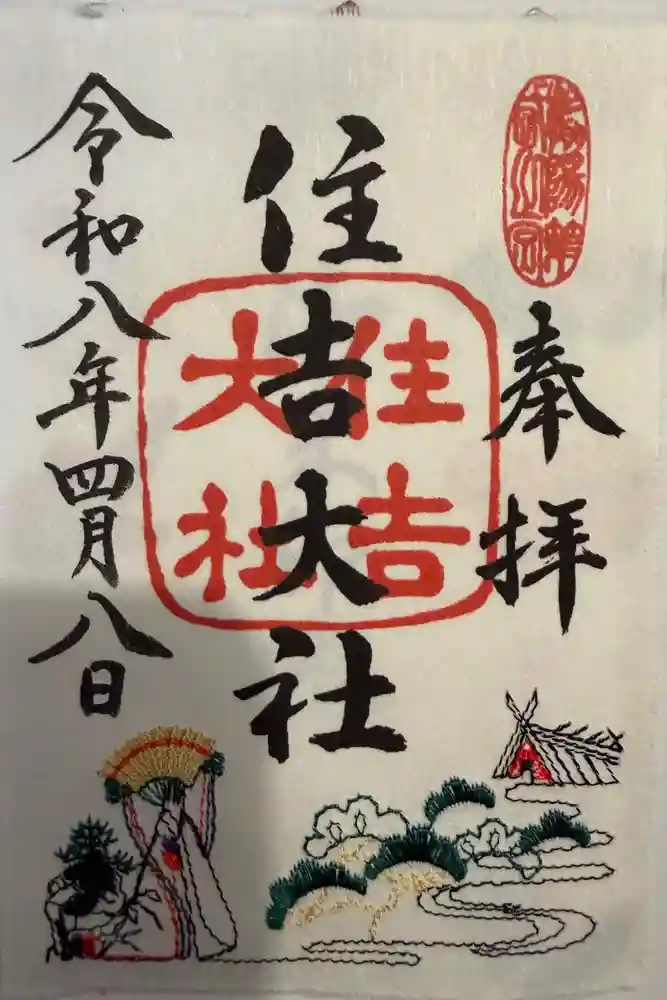 奉拝
住吉大社
住吉
大社
令和八年四月八日